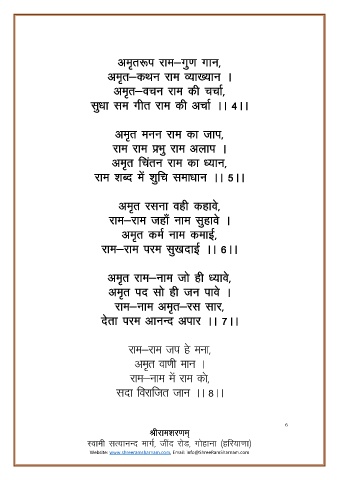 अमृतरूप राम–गुण गान,
अमृत–कथन राम व्याख्यान ।
अमृत–वचन राम की चर्चा,
सुधा सम गीत राम की अर्चा ।। 4।।
अमृत मनन राम का जाप,
राम राम प्रभु राम अलाप ।
अमृत चिंतन राम का ध्यान,
राम शब्द में शुचि समाधान ।। 5।।
अमृत रसना वही कहावे,
राम–राम जहाँ नाम सुहावे ।
अमृत कर्म नाम कमाई,
राम–राम परम सुखदाई ।। 6।।
अमृत राम–नाम जो ही ध्यावे,
अमृत पद सो ही जन पावे ।
राम–नाम अमृत–रस सार,
देता परम आनन्द अपार ।। 7।।
राम–राम जप हे मना,
अमृत वाणी मान ।
राम–नाम में राम को,
सदा विराजित जान ।। 8।।
6
श्रीरामशरणम्
स्वामी सत्यानन्द मार्ग, जींद रोड, गोहाना (हरियाणा)
Website: www.shreeramsharnam.com, Email: info@ShreeRamSharnam.com